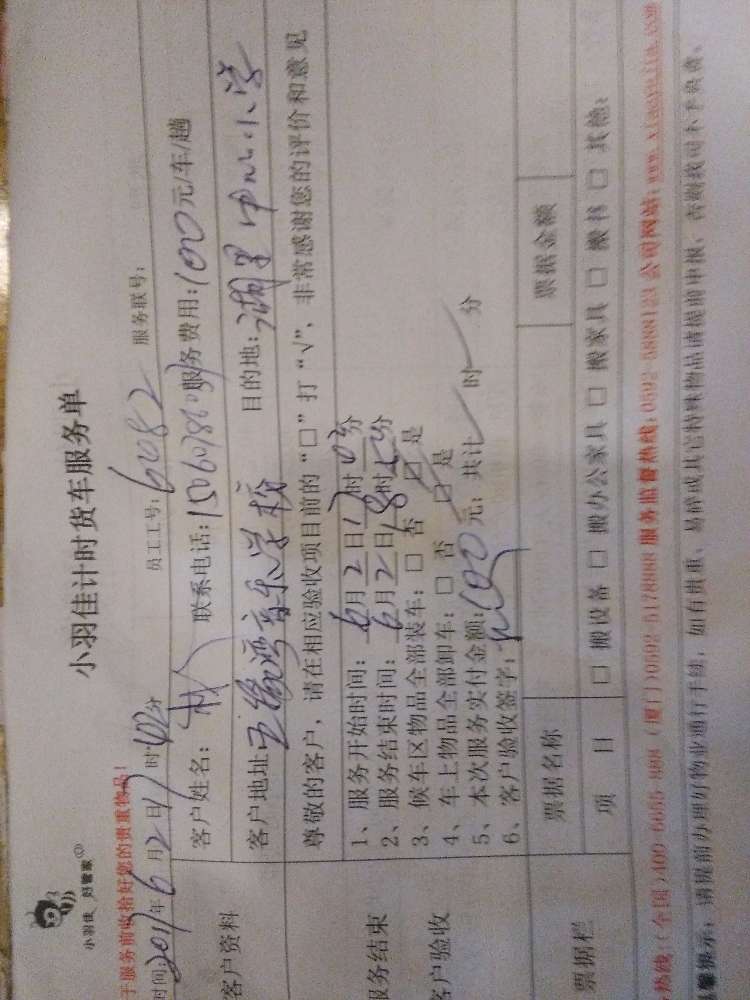 小羽佳 好管家
小羽佳计时货车服务单
于服务前收拾好您的贵重物品!
时间: 2011年6月2日17时02分 员工工号: 6082 服务联号:
客户资料
客户姓名: 林 联系电话: 服务费用: 100元/车/趟
客户地址 五缘湾音乐学校 目的地: 湖里中心小学
尊敬的客户,请在相应验收项目前的“□”打“√”,非常感谢您的评价和意见
服务结束
客户验收
1、服务开始时间: 6月2日17时02分
2、服务结束时间: 6月2日18时
3、候车区物品全部装车: □ 否 □ 是
4、车上物品全部卸车: □ 否 □ 是
5、本次服务实付金额: 100元; 共计 时 分
6、客户验收签字:
票据栏
票据名称 票据金额
项目 □ 搬设备 □ 搬办公家具 □ 搬家具 □ 搬书 □ 其他:
热线:(全国)400-6655-888 (厦门)0592-5178888 服务监督热线:0592-5888123 公司网站:www.xiaoyujia.com
馨提示: 请提前办理好物业通行手续,如有贵重、易碎或其它特殊物品请提前申报,否则我司不予负责。